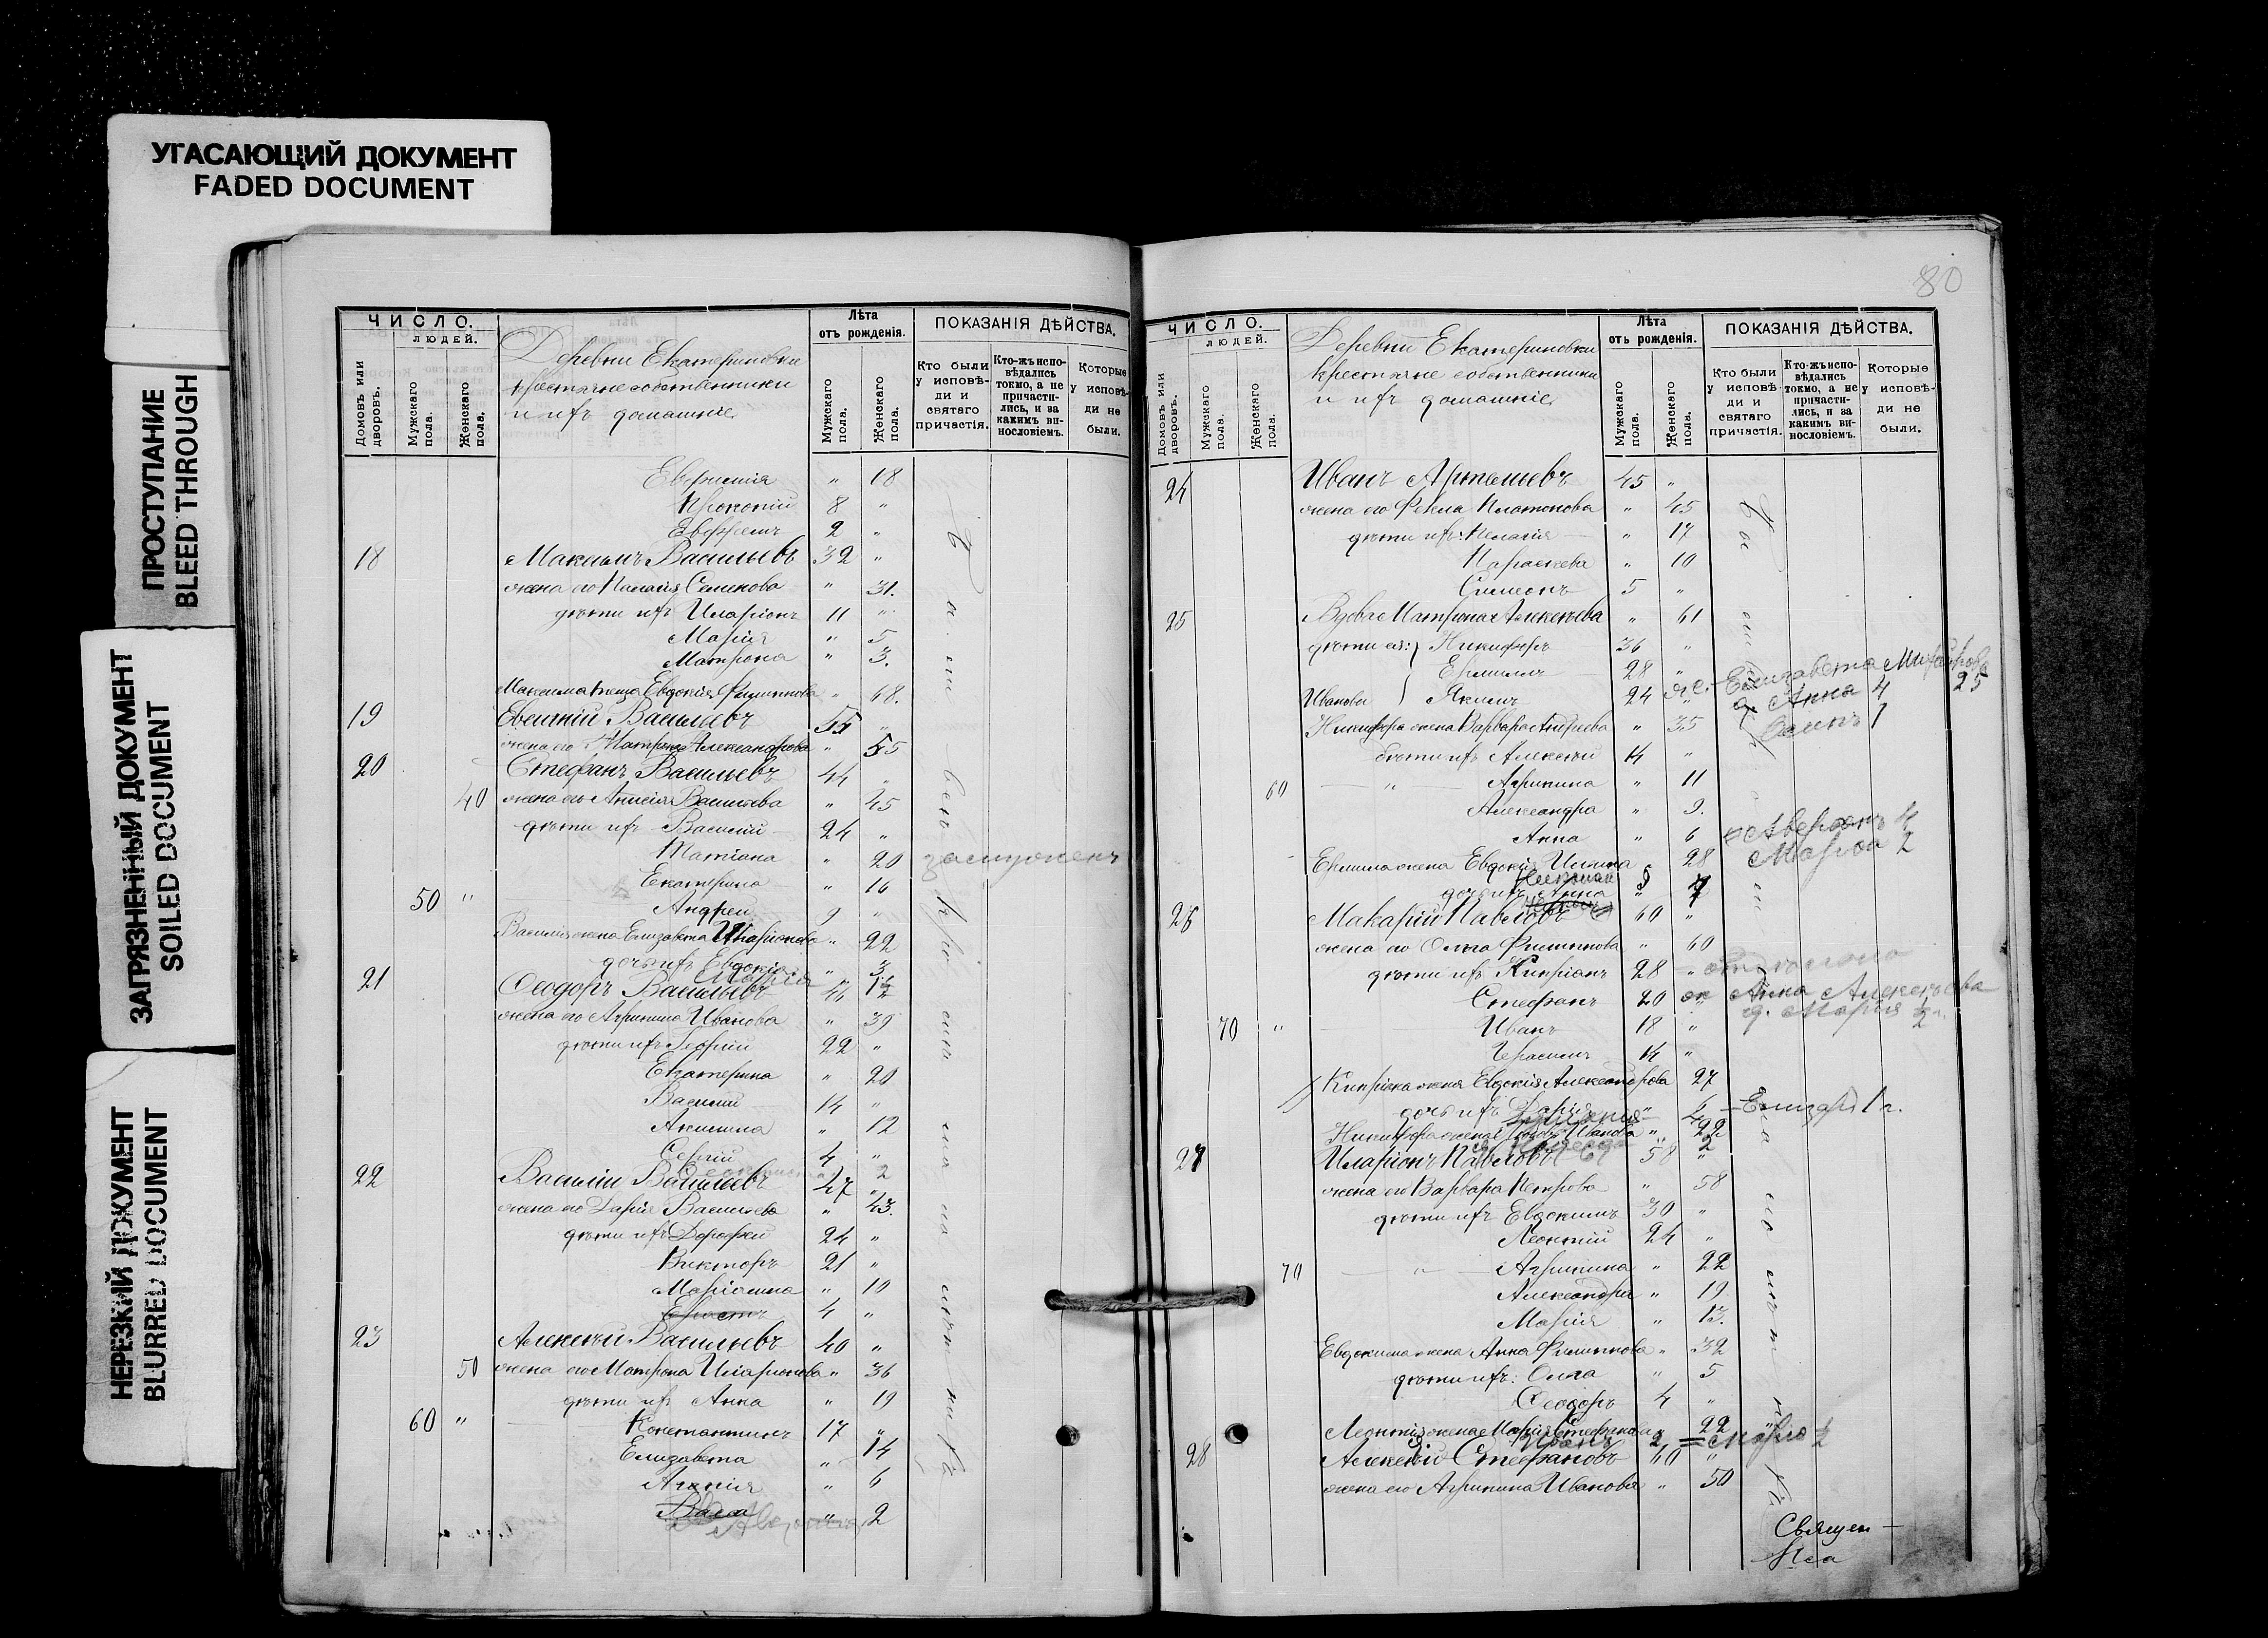 УГАСАЮЩИЙ ДОКУМЕНТ
FADED DOCUMENT
ПРОСТУПАНИЕ
BLEED THROUGH
ЗАГРЯЗНЕННЫЙ ДОКУМЕНТ
SOILED DOCUMENT
НЕРЕЗКИЙ ДОКУМЕНТ
BLURRED DOCUMENT
ЧИСЛО.
ЛЮДЕЙ.
Домовъ или дворовъ.
Мужскаго пола.
Женскаго пола.
Деревни Екатериновки
крестьяне собственники
и ихъ домашніе
Лѣта
отъ рожденія.
Мужскаго пола.
Женскаго пола.
ПОКАЗАНІЯ ДѢЙСТВА.
Кто были у исповѣ-ди и святаго причастія.
Кто-жъ испо-вѣдались токмо, а не причасти-лись, и за какимъ ви-нословіемъ.
Которые у исповѣ-ди не были.
Евфимія " 18
Прокопій 8 "
2 "
18 Максимъ Васильевъ 32 "
жена его Пелагія Семенова " 31.
дѣти ихъ Иларіонъ 11 "
Марія " 5
Матрона " 3.
Максима теща Евдокія Филиппова " 68.
19 Евгеній Васильевъ 55 "
жена его Матрона Александрова " 55
20 Стефанъ Васильевъ 44 "
40 жена его Анисія Васильева " 45
дѣти ихъ Василій 24 "
Татіана " 20 замужемъ
Екатерина " 16
50 " Андрей 9 "
Василія жена Елизавета Иларіонова " 22
дочь ихъ Евдокія " 3
Марія 1½
21 Ѳеодоръ Васильевъ 42
жена его Агрипина Иванова " 39
дѣти ихъ Георгій 22 "
Екатерина " 20
Василій 14 "
Акилина " 12
Сергій 4 "
2
22 Василій Васильевъ 47 "
жена его Дарія Васильева " 43.
дѣти ихъ Дорофей 24 "
Викторъ 21 "
Маріамна " 10
4 "
23 Алексѣй Васильевъ 40 "
50 жена его Матрона Иларіонова " 36
дѣти ихъ Анна " 19
60 " Константинъ 17 "
Елизавета " 14
Агапія " 6
" 2
80
ЧИСЛО.
ЛЮДЕЙ.
Домовъ или дворовъ.
Мужскаго пола.
Женскаго пола.
Деревни Екатериновки
крестьяне собственники
и ихъ домашніе
Лѣта
отъ рожденія.
Мужскаго пола.
Женскаго пола.
ПОКАЗАНІЯ ДѢЙСТВА.
Кто были у исповѣ-ди и святаго причастія.
Кто-жъ испо-вѣдались токмо, а не причасти-лись, и за какимъ ви-нословіемъ.
Которые у исповѣ-ди не были.
24 Иванъ Артемьевъ 45 "
жена его Ѳекла Платонова " 45
дѣти ихъ: Пелагія " 17
Параскева " 10
Симеонъ 5 "
25 Вдова Матрона Алексѣева " 61
дѣти ея: Никифоръ 36 "
Ермилъ 28 "
Ивановы Якимъ 24 " ж. Елизавета 25
д. Анна 4
1
Никифора жена Варвара Андреева " 35
дѣти ихъ Алексѣй 14 "
60 " Агрипина " 11
Александра " 9.
Анна " 6
Ермила жена Евдокія Ильина " 28 Марѳа 2
дочь ихъ Анна "
26 Макарій Павловъ 60 "
жена его Ольга Филиппова " 60
дѣти ихъ Кипріанъ 28 "
Стефанъ 20 ж Анна Алексѣева
д. Марія ½ г.
70 " Иванъ 18 "
Герасимъ 14 "
Кипріана жена Евдокія Александрова 27
дочь ихъ Дарія " 1 г.
Иванова " 22
2
27 Иларіонъ Павловъ 58 "
жена его Варвара Петрова " 58
дѣти ихъ Евдокимъ 30 "
Леонтій 24 "
70 " Агрипина " 22
Александра " 19.
Марія " 13.
Евдокима жена Анна Филиппова " 32
дѣти ихъ: Ольга " 5
Ѳеодоръ 4 "
Леонтія жена Марія Стефанова " 22
Иванъ 2 ½
28 Алексѣй Стефановъ 60 "
жена его Агрипина Иванова " 50
Священ-